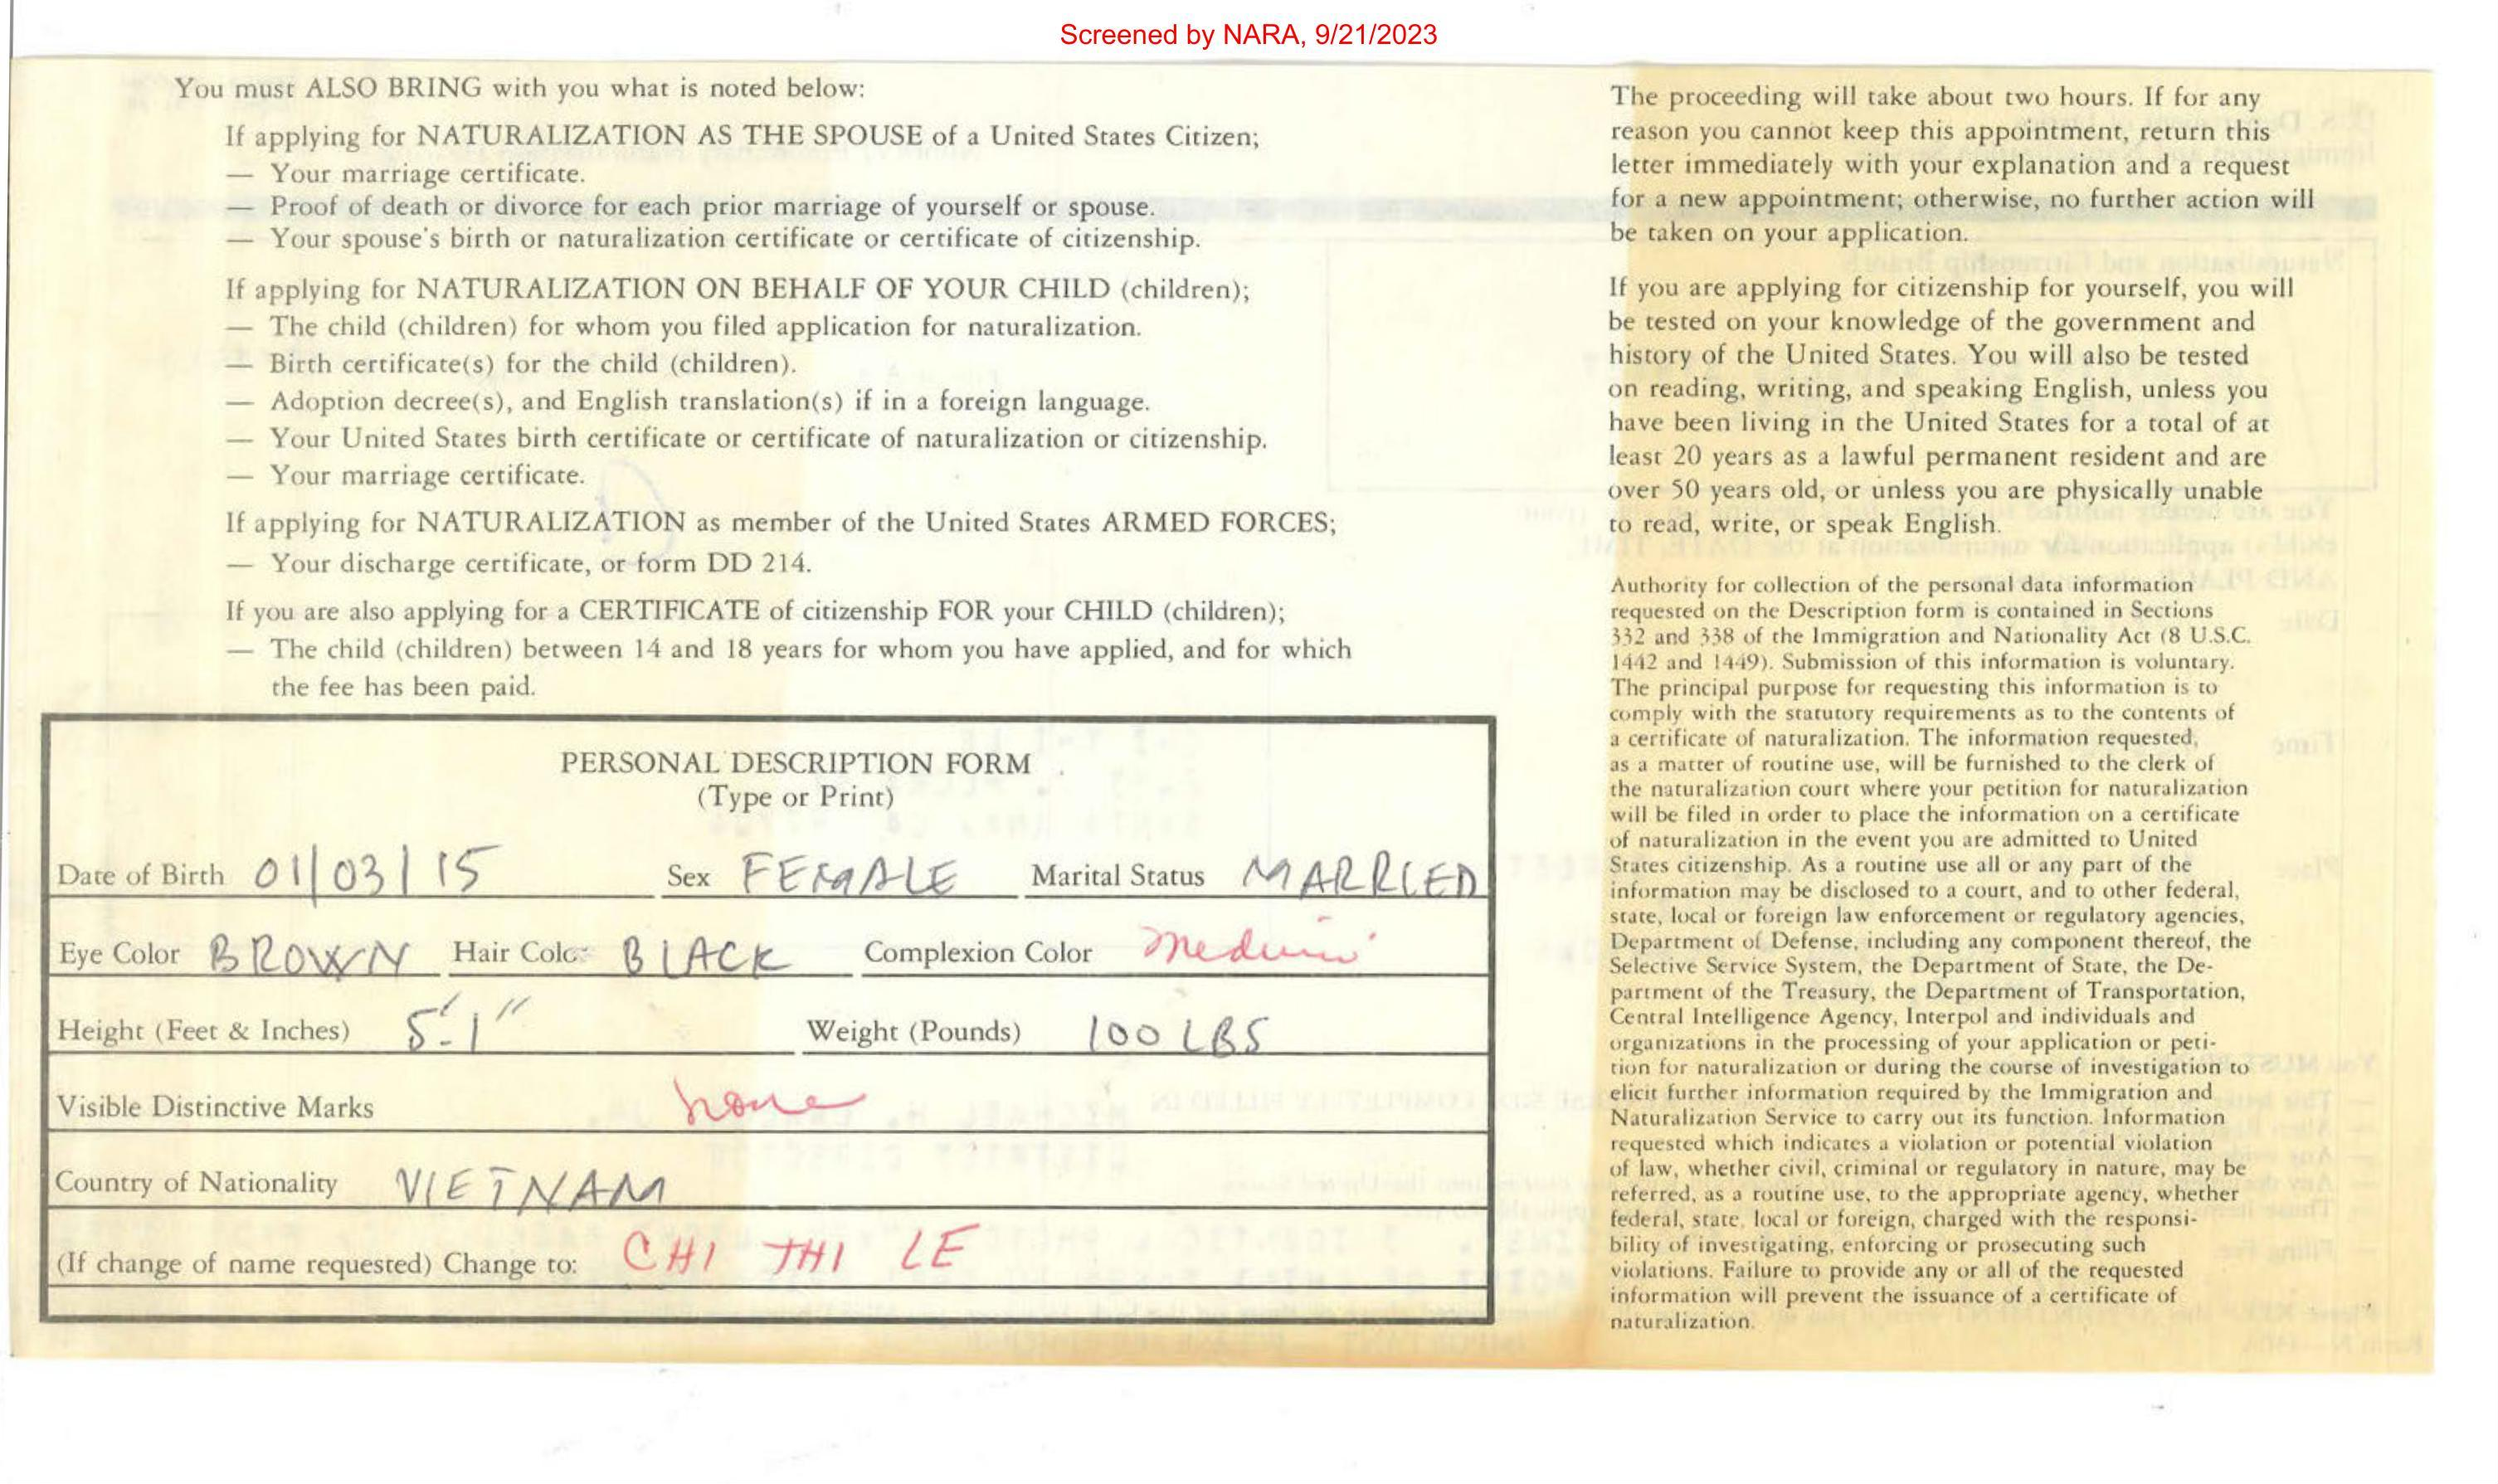 Screened by NARA, 9/21/2023
You must ALSO BRING with you what is noted below:
If applying for NATURALIZATION AS THE SPOUSE of a United States Citizen;
— Your marriage certificate.
Proof of death or divorce for each prior marriage of yourself or spouse.
— Your spouse's birth or naturalization certificate or certificate of citizenship.
If applying for NATURALIZATION ON BEHALF OF YOUR CHILD (children);
— The child (children) for whom you filed application for naturalization.
— Birth certificate(s) for the child (children).
— Adoption decree(s), and English translation(s) if in a foreign language.
— Your United States birth certificate or certificate of naturalization or citizenship.
— Your marriage certificate.
If applying for NATURALIZATION as member of the United States ARMED FORCES;
— Your discharge certificate, or form DD 214.
If you are also applying for a CERTIFICATE of citizenship FOR your CHILD (children);
— The child (children) between 14 and 18 years for whom you have applied, and for which
the fee has been paid.
PERSONAL DESCRIPTION FORM
(Type or Print)
Date of Birth 01/03/15 Sex FEMALE Marital Status MARRIED
Eye Color BROWN Hair Color BLACK Complexion Color medium
Height (Feet & Inches) 5'-1" Weight (Pounds) 100 LBS
Visible Distinctive Marks none
Country of Nationality VIETNAM
(If change of name requested) Change to: CHI THI LE
The proceeding will take about two hours. If for any
reason you cannot keep this appointment, return this
letter immediately with your explanation and a request
for a new appointment; otherwise, no further action will
be taken on your application.
If you are applying for citizenship for yourself, you will
be tested on your knowledge of the government and
history of the United States. You will also be tested
on reading, writing, and speaking English, unless you
have been living in the United States for a total of at
least 20 years as a lawful permanent resident and are
over 50 years old, or unless you are physically unable
to read, write, or speak English.
Authority for collection of the personal data information
requested on the Description form is contained in Sections
332 and 338 of the Immigration and Nationality Act (8 U.S.C.
1442 and 1449). Submission of this information is voluntary.
The principal purpose for requesting this information is to
comply with the statutory requirements as to the contents of
a certificate of naturalization. The information requested,
as a matter of routine use, will be furnished to the clerk of
the naturalization court where your petition for naturalization
will be filed in order to place the information on a certificate
of naturalization in the event you are admitted to United
States citizenship. As a routine use all or any part of the
information may be disclosed to a court, and to other federal,
state, local or foreign law enforcement or regulatory agencies,
Department of Defense, including any component thereof, the
Selective Service System, the Department of State, the De-
partment of the Treasury, the Department of Transportation,
Central Intelligence Agency, Interpol and individuals and
organizations in the processing of your application or peti-
tion for naturalization or during the course of investigation to
elicit further information required by the Immigration and
Naturalization Service to carry out its function. Information
requested which indicates a violation or potential violation
of law, whether civil, criminal or regulatory in nature, may be
referred, as a routine use, to the appropriate agency, whether
federal, state, local or foreign, charged with the responsi-
bility of investigating, enforcing or prosecuting such
violations. Failure to provide any or all of the requested
information will prevent the issuance of a certificate of
naturalization.